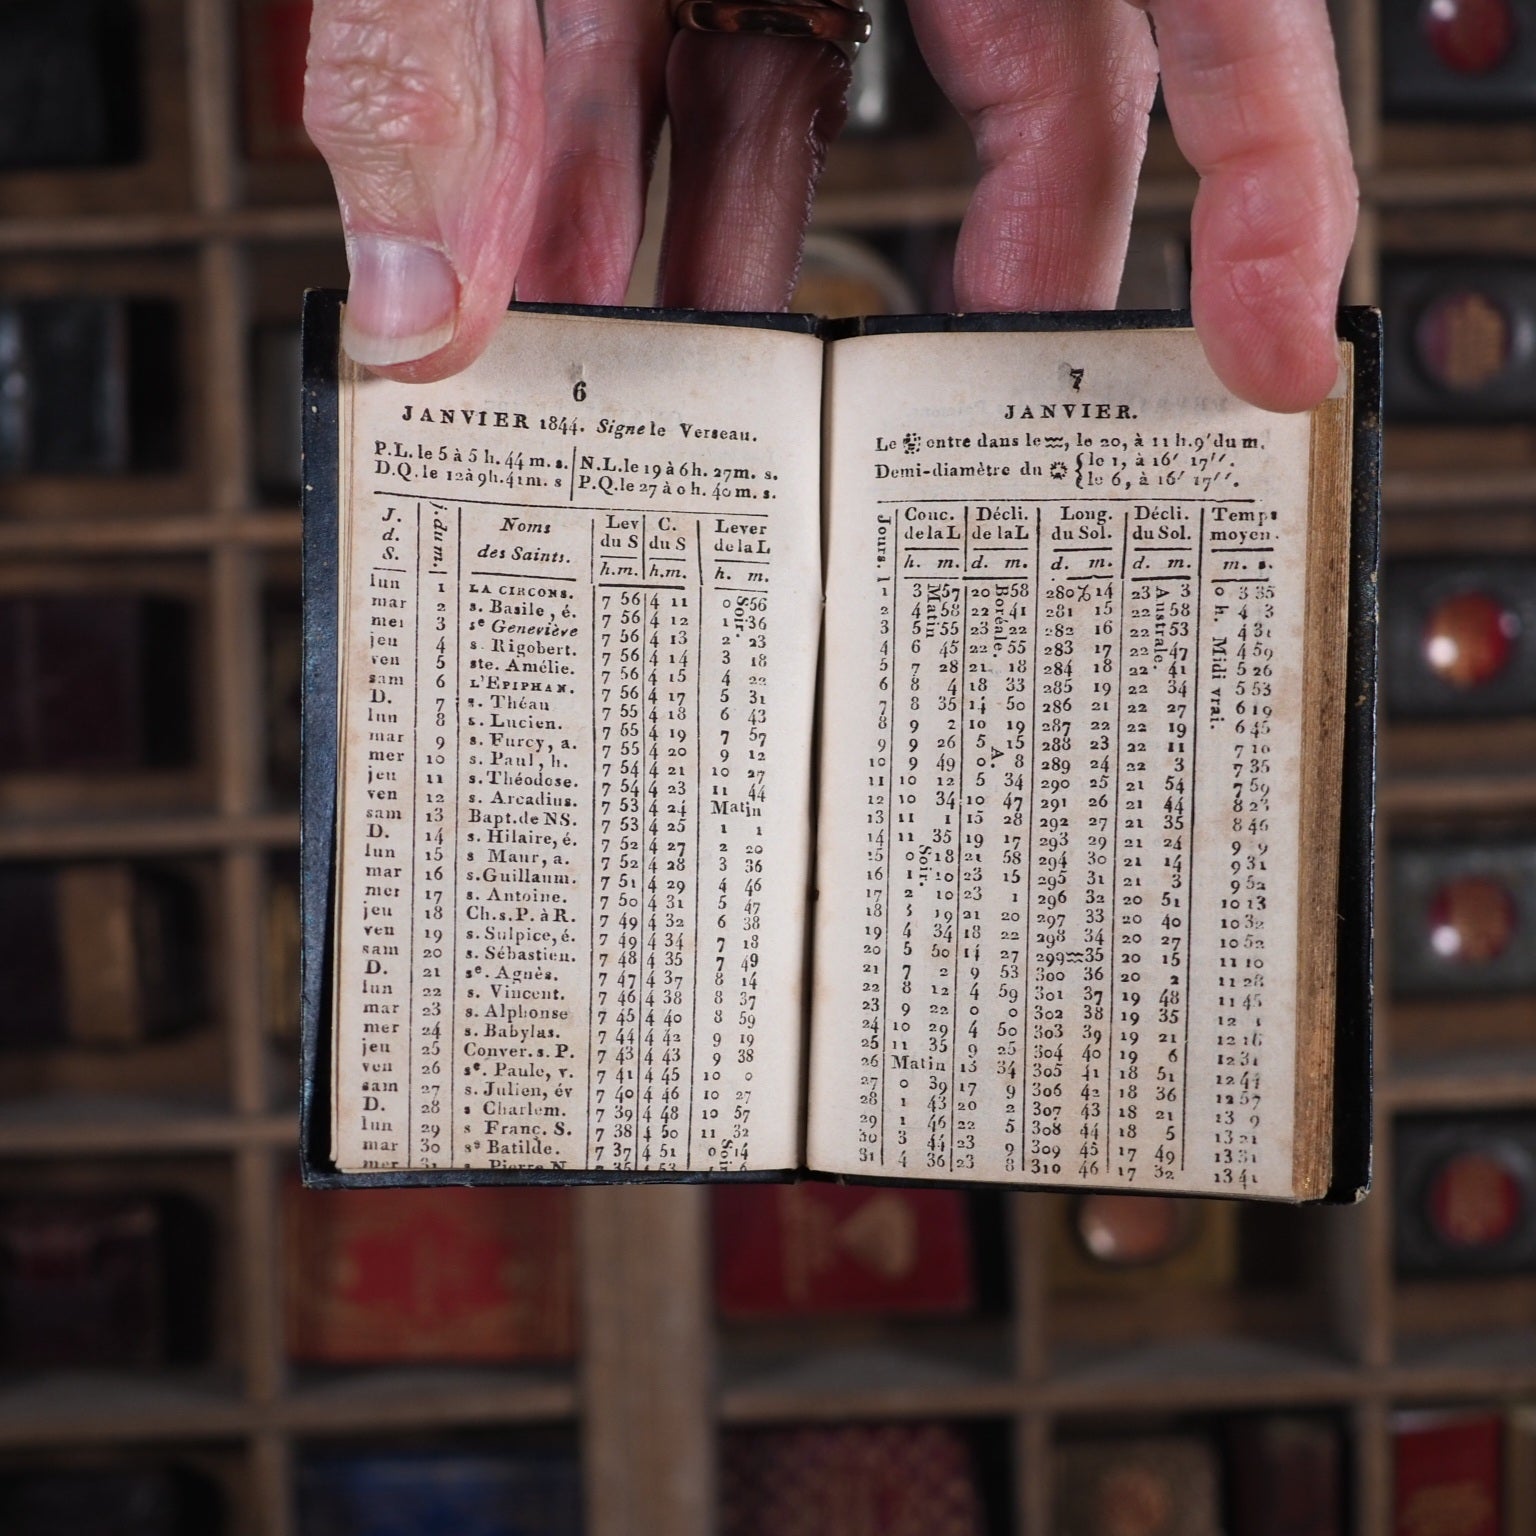 6
JANVIER 1844. Signe le Verseau.
P.L. le 5 à 5 h. 44 m. s. N.L. le 19 à 6 h. 27 m. s.
D.Q. le 12 à 9 h. 41 m. s P.Q. le 27 à 0 h. 40 m. s.
J. d. S. j. du m. Noms des Saints. Lev du S C. du S Lever de la L
h. m. h. m. h. m.
lun 1 LA CIRCONS. 7 56 4 11 0 56
mar 2 s. Basile, é. 7 56 4 12 1 36
mer 3 se Geneviève 7 56 4 13 2 23
jeu 4 s. Rigobert. 7 56 4 14 3 18
ven 5 ste. Amélie. 7 56 4 15 4 22
sam 6 L'EPIPHAN. 7 56 4 17 5 31
D. 7 s. Théau 7 55 4 18 6 43
lun 8 s. Lucien. 7 55 4 19 7 57
mar 9 s. Furcy, a. 7 55 4 20 9 12
mer 10 s. Paul, h. 7 54 4 21 10 27
jeu 11 s. Théodose. 7 54 4 23 11 44
ven 12 s. Arcadius. 7 53 4 24 Matin
sam 13 Bapt. de NS. 7 53 4 25 1 1
D. 14 s. Hilaire, é. 7 52 4 27 2 20
lun 15 s Maur, a. 7 52 4 28 3 36
mar 16 s. Guillaum. 7 51 4 29 4 46
mer 17 s. Antoine. 7 50 4 31 5 47
jeu 18 Ch. s. P. à R. 7 49 4 32 6 38
ven 19 s. Sulpice, é. 7 49 4 34 7 18
sam 20 s. Sébastien. 7 48 4 35 7 49
D. 21 se. Agnès. 7 47 4 37 8 14
lun 22 s. Vincent. 7 46 4 38 8 37
mar 23 s. Alphonse 7 45 4 40 8 59
mer 24 s. Babylas. 7 44 4 42 9 19
jeu 25 Conver. s. P. 7 43 4 43 9 38
ven 26 se. Paule, v. 7 41 4 45 10 0
sam 27 s. Julien, év 7 40 4 46 10 27
D. 28 s Charlem. 7 39 4 48 10 57
lun 29 s Franç. S. 7 38 4 50 11 32
mar 30 se Batilde. 7 37 4 51 0 14
mer 31 s. Pierre N 7 35 4 53
Soir.
7
JANVIER.
Le entre dans le ♒, le 20, à 11 h. 9' du m.
Demi-diamètre du le 1, à 16' 17''.
le 6, à 16' 17''.
Jours. Conc. de la L Décli. de la L Long. du Sol. Décli. du Sol. Temps moyen.
h. m. d. m. d. m. d. m. m. s.
1 3 57 20 58 280 ♑ 14 23 3 3 35
2 4 58 22 41 281 15 22 58 4 3
3 5 55 23 22 282 16 22 53 4 31
4 6 45 22 55 283 17 22 47 4 59
5 7 28 21 18 284 18 22 41 5 26
6 8 4 18 33 285 19 22 34 5 53
7 8 35 14 50 286 21 22 27 6 19
8 9 2 10 19 287 22 22 19 6 45
9 9 26 5 15 288 23 22 11 7 10
10 9 49 0 8 289 24 22 3 7 35
11 10 12 5 34 290 25 21 54 7 59
12 10 34 10 47 291 26 21 44 8 23
13 11 1 15 28 292 27 21 35 8 46
14 11 35 19 17 293 29 21 24 9 9
15 0 18 21 58 294 30 21 14 9 31
16 1 10 23 15 295 31 21 3 9 52
17 2 10 23 1 296 32 20 51 10 13
18 3 19 21 20 297 33 20 40 10 32
19 4 34 18 22 298 34 20 27 10 52
20 5 50 14 27 299 ♒ 35 20 15 11 10
21 7 2 9 53 300 36 20 2 11 28
22 8 12 4 59 301 37 19 48 11 45
23 9 22 0 0 302 38 19 35 12 1
24 10 29 4 50 303 39 19 21 12 16
25 11 35 9 25 304 40 19 6 12 31
26 Matin 13 34 305 41 18 51 12 44
27 0 39 17 9 306 42 18 36 12 57
28 1 43 20 2 307 43 18 21 13 9
29 1 46 22 5 308 44 18 5 13 21
30 3 44 23 9 309 45 17 49 13 31
31 4 36 23 8 310 46 17 32 13 41
Matin
Soir.
Boréale.
A.
Australe.
0 h. Midi vrai.